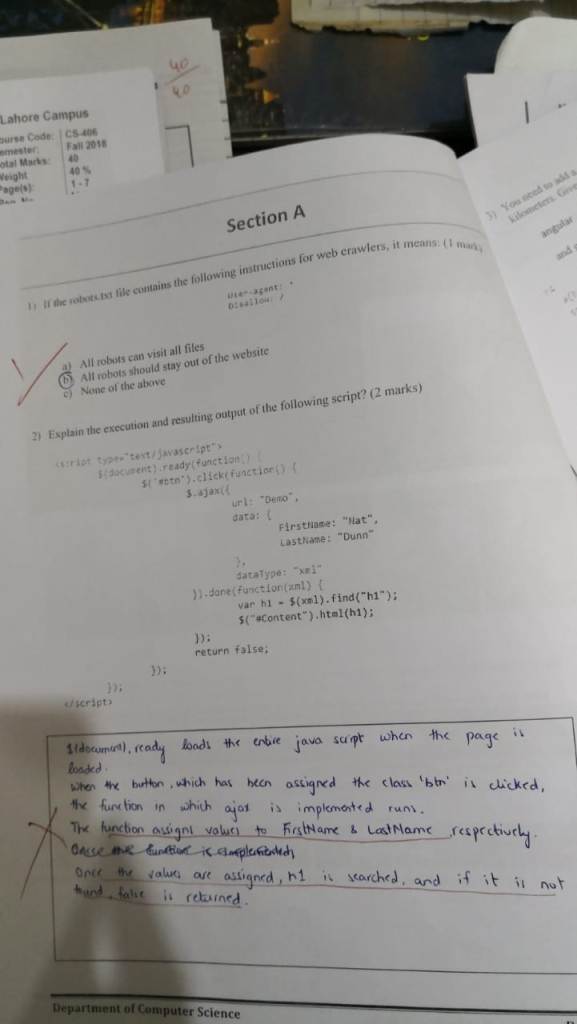 40
40
Lahore Campus
Course Code: CS-406
Semester: Fall 2018
Total Marks: 40
Weight 40 %
Page(s): 1-7
Section A
1) If the robots.txt file contains the following instructions for web crawlers, it means: (1 mark)
User-agent: *
Disallow: /
a) All robots can visit all files
b) All robots should stay out of the website
c) None of the above
2) Explain the execution and resulting output of the following script? (2 marks)
<script type="text/javascript">
$(document).ready(function() {
$('#btn').click(function() {
$.ajax({
url: "Demo",
data: {
FirstName: "Nat",
LastName: "Dunn"
},
dataType: "xml"
}).done(function(xml) {
var h1 = $(xml).find("h1");
$("#Content").html(h1);
});
return false;
});
});
</script>
$(document), ready loads the entire java script when the page is
loaded.
When the button, which has been assigned the class 'btn' is clicked,
the function in which ajax is implemented runs.
The function assigns values to FirstName & LastName respectively.
Once the function is implemented,
Once the values are assigned, h1 is searched, and if it is not
found, false is returned.
Department of Computer Science
3) You need to add a
kilometers.
angular
and